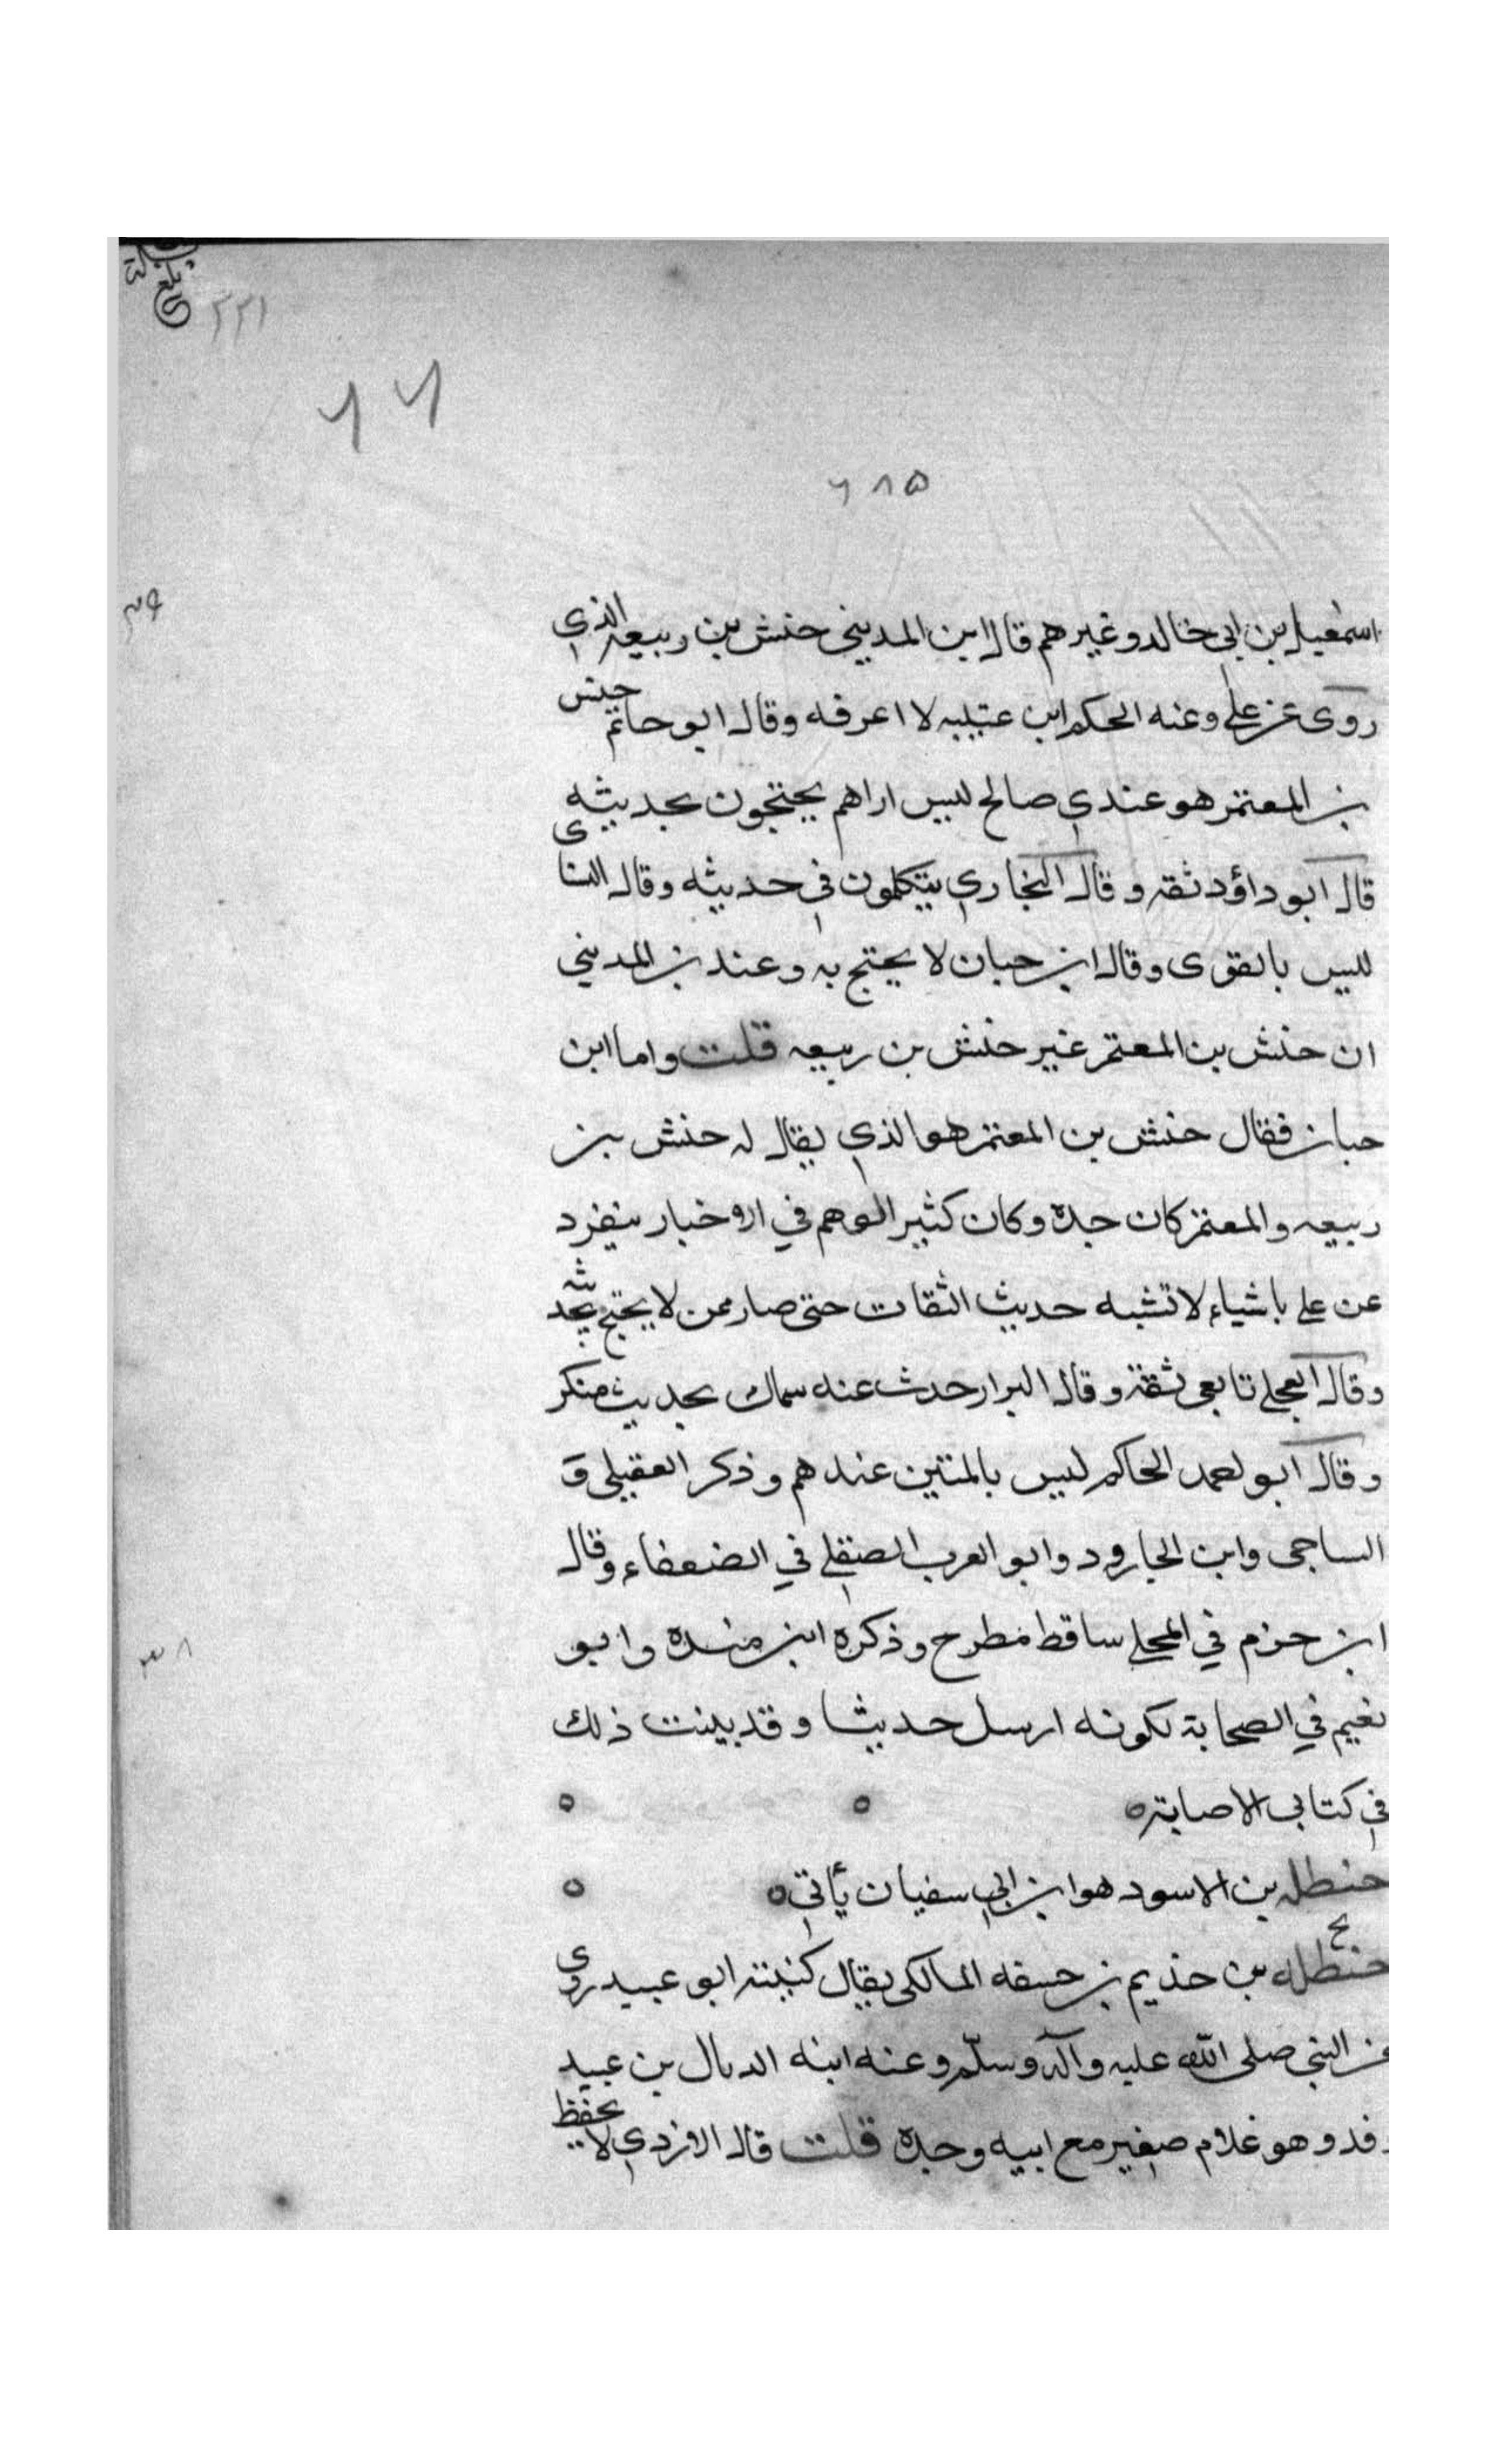 ٢٢١
٦٦
٦٨٥
اسمعيل بن ابي خالد وغيرهم قال ابن المديني حنش بن ربيعه الذي
روى عن علي وعنه الحكم ابن عتيبه لا اعرفه وقال ابو حاتم حنش
بن المعتمر هو عندي صالح ليس اراهم يحتجون بحديثه
قال ابو داؤد ثقه و قال البخاري يتكلمون في حديثه وقال النسائى
ليس بالقوى وقال ابن حبان لا يحتج به وعند بن المديني
ان حنش بن المعتمر غير حنش بن ربيعه قلت واما ابن
حبان فقال حنش بن المعتمر هو الذي يقال له حنش بن
ربيعه والمعتمر كان جده وكان كثير الوهم في الاخبار ينفرد
عن علي باشياء لا تشبه حديث الثقات حتى صار ممن لا يحتج بحديثه
وقال العجلي تابعي ثقة وقال البزار حدث عنه سماك بحديث منكر
وقال ابو احمد الحاكم ليس بالمتين عندهم وذكر العقيلى و
الساجى وابن الجارود وابو العرب الصقلي في الضعفاء وقال
ابن حزم في المحلي ساقط مطرح وذكره ابن منده وابو
نعيم في الصحابة لكونه ارسل حديثا وقد بينت ذلك
في كتابي الاصابة ٥ ٥ ٥
حنطله بن الاسود هو ابن ابي سفيان يأتي ٥ ٥
بخ
حنطله بن حذيم بن حنيفه المالكى يقال كنيته ابو عبيد روى
عن النبي صلى الله عليه وآله وسلم وعنه ابنه الديال بن عبيد
وفد وهو غلام صغير مع ابيه وجده قلت قال الازدي لا يحفظ